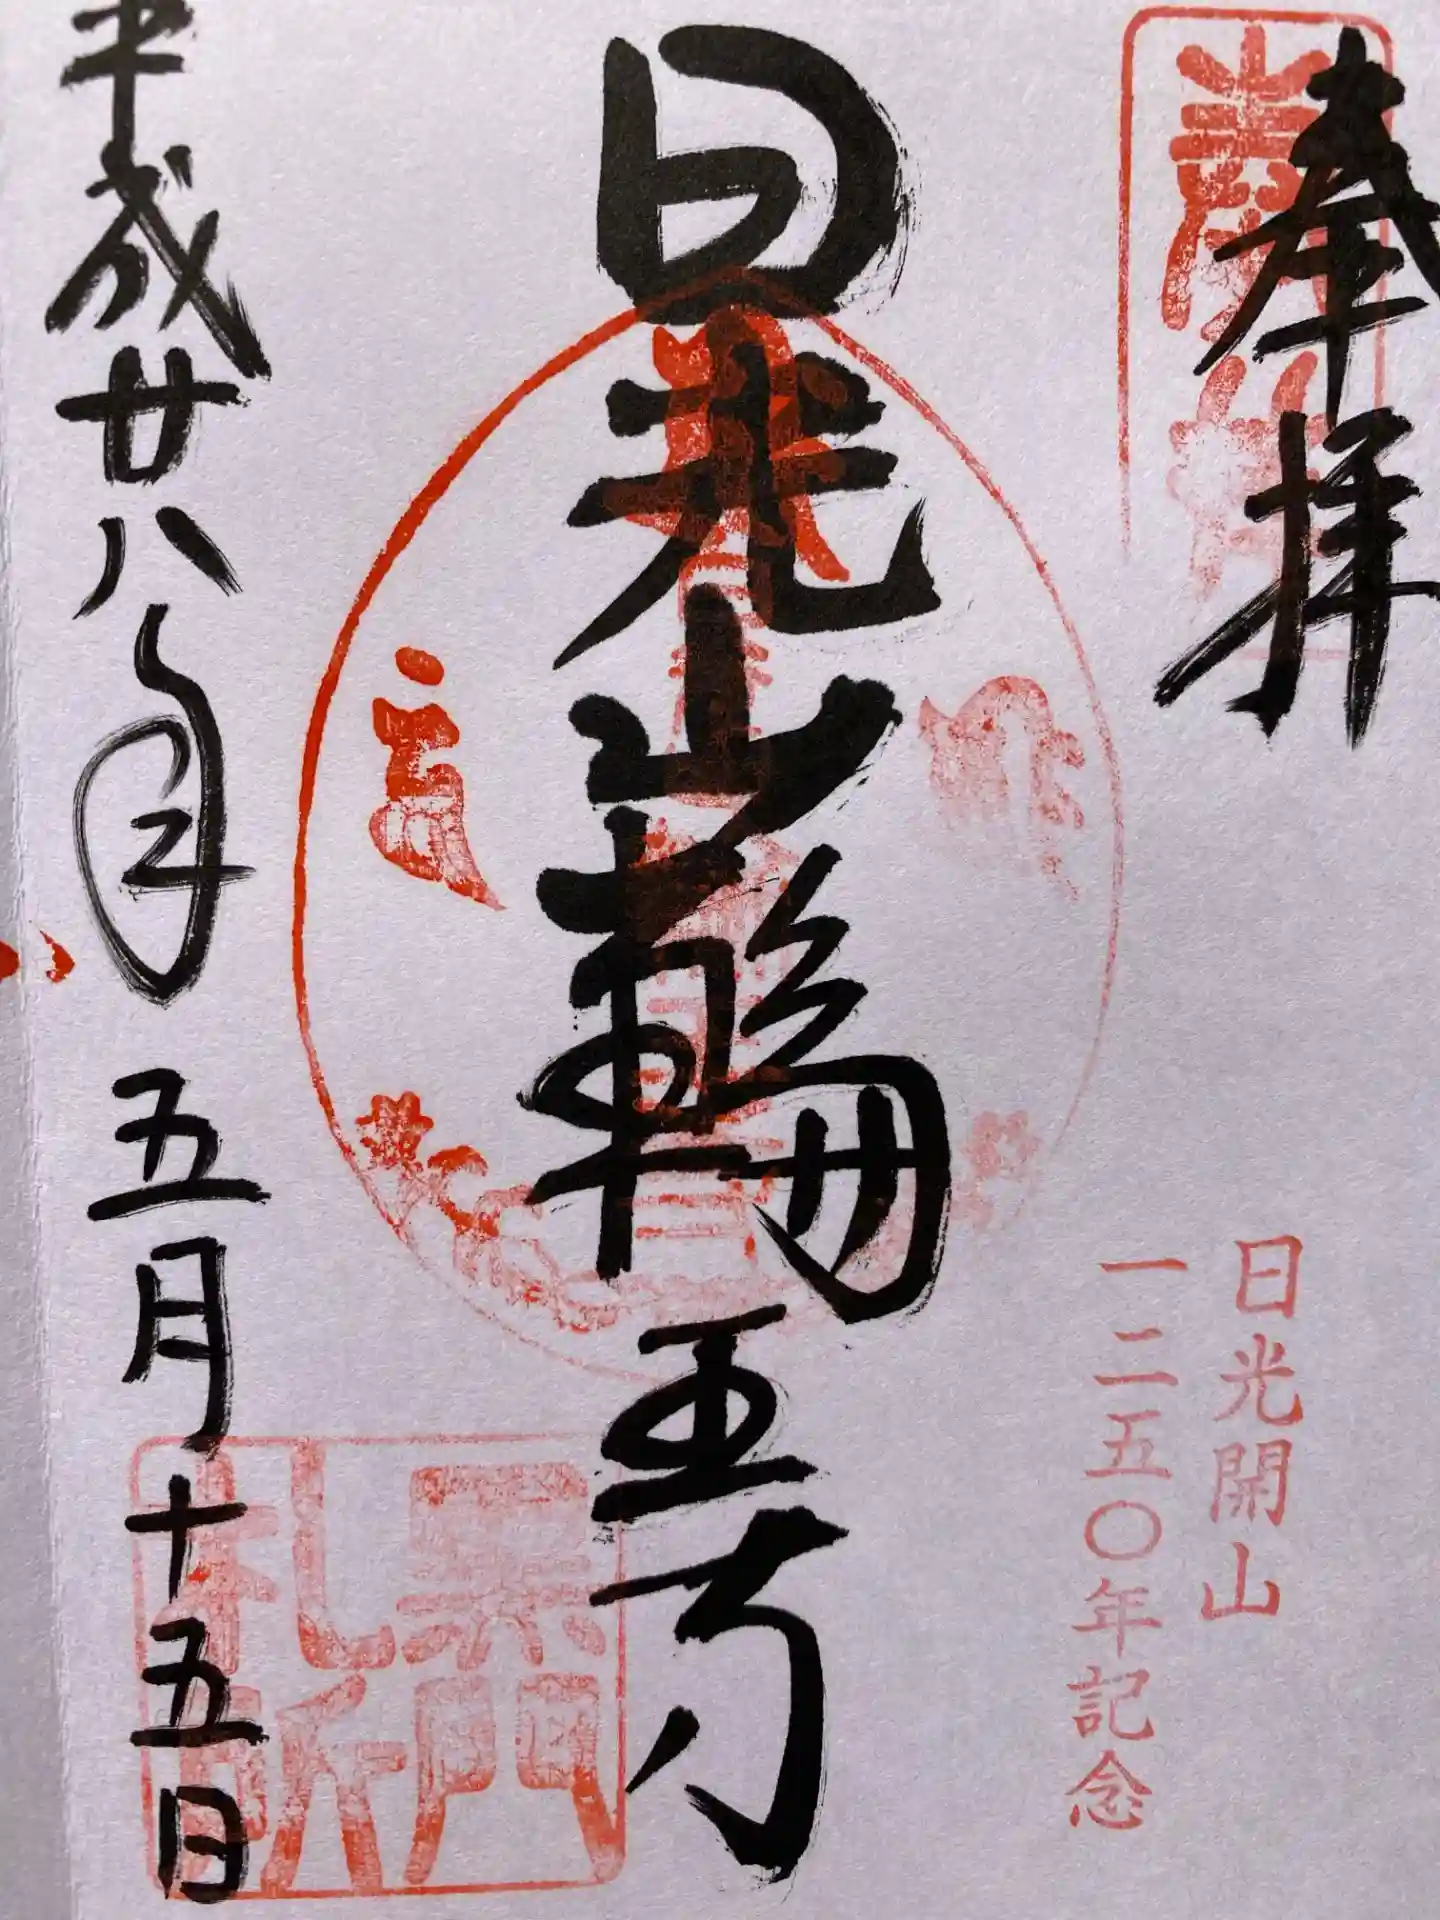 奉拝
日光開山
一二五〇年記念
日光山輪王寺
平成廿八年五月十五日
黒門
札所